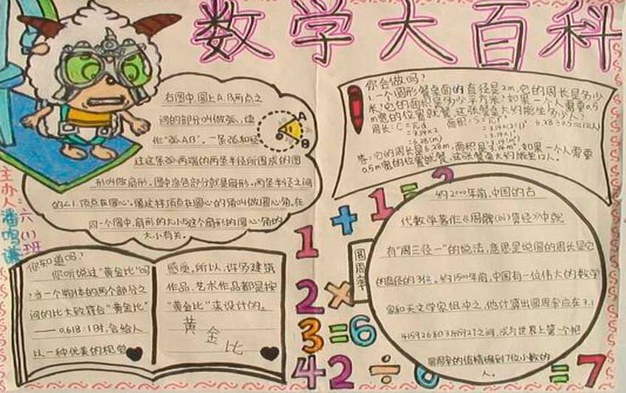 数学大百科
右图中,圆上A、B两点之
间的部分叫做弧,读
作"弧AB",一条弧和经
过这条弧两端的两条半径所围成的图
形叫做扇形,图中涂色部分就是扇形,两条半径之间
的∠1,顶点在圆心,像这样顶点在圆心的角叫做圆心角,在
同一个圆中,扇形的大小与这个扇形的圆心角的
大小有关。
A
B
你会做吗?
1.一个圆形餐桌面的直径是2m,它的周长是多少
米?它的面积是多少平方米?如果一个人需要0.5
m宽的位置就餐,这张餐桌大约能坐多少人?
周长:C=πd
答:它的周长是6.28m,面积是3.14m²,如果一个人需要
0.5m宽的位置就餐,这张餐桌大约能坐12人。
主办人:六(1)班
你知道吗?
你听说过"黄金比"吗
?当一个物体的两个部分之
间的比大致符合"黄金比"
——0.618:1时,会给人
以一种优美的视觉
感觉,所以,许多建筑
作品、艺术作品都是按
"黄金比"来设计的。
黄金比
圆周率
约2000年前,中国的古
代数学著作《周髀算经》中就
有"周三径一"的说法,意思是说圆的周长是它
的直径的3倍。约1500年前,中国有一位伟大的数学
家和天文学家祖冲之,他计算出圆周率应在3.1
415926和3.1415927之间,成为世界上第一个把
圆周率的值精确到7位小数的
人。
1+1=2
2×
3=6
42÷6=7